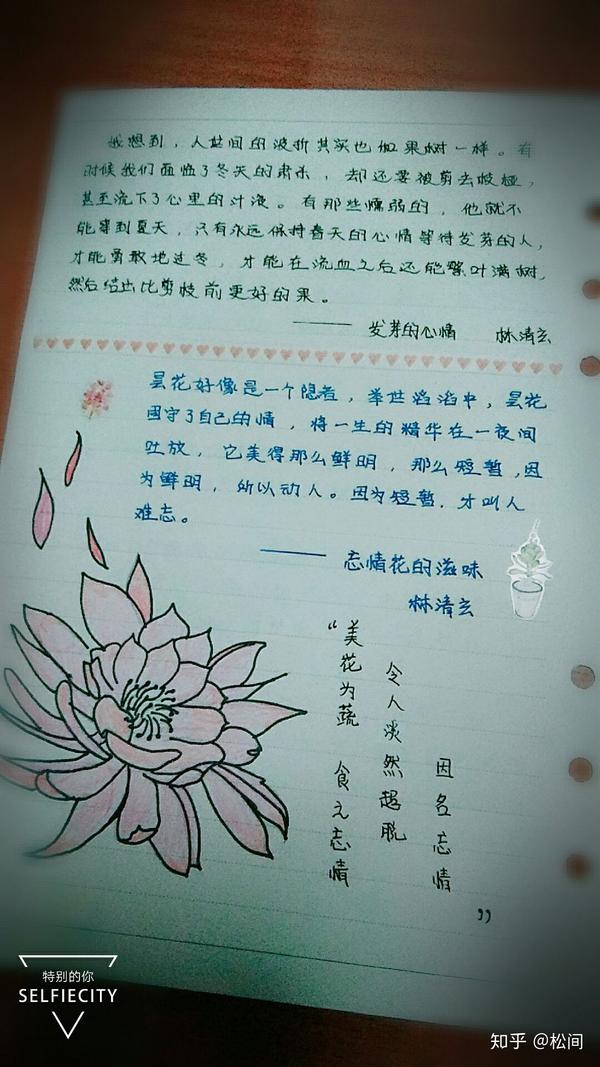 我想到，人世间的波折其实也如果树一样。有
时候我们面临了冬天的肃杀，却还要被剪去枝桠，
甚至流下了心里的汁液。有那些懦弱的，他就不
能等到夏天，只有永远保持春天的心情等待发芽的人，
才能勇敢地过冬，才能在流血之后还能繁叶满树，
然后结出比剪枝前更好的果。
—— 发芽的心情 林清玄
昙花好像是一个隐者，举世滔滔中，昙花
固守了自己的情，将一生的精华在一夜间
吐放，它美得那么鲜明，那么短暂，因
为鲜明，所以动人。因为短暂，才叫人
难忘。
—— 忘情花的滋味
林清玄
“美花为蔬 食之忘情
令人淡然超脱
因名忘情”
特别的你
SELFIECITY
知乎 @松间